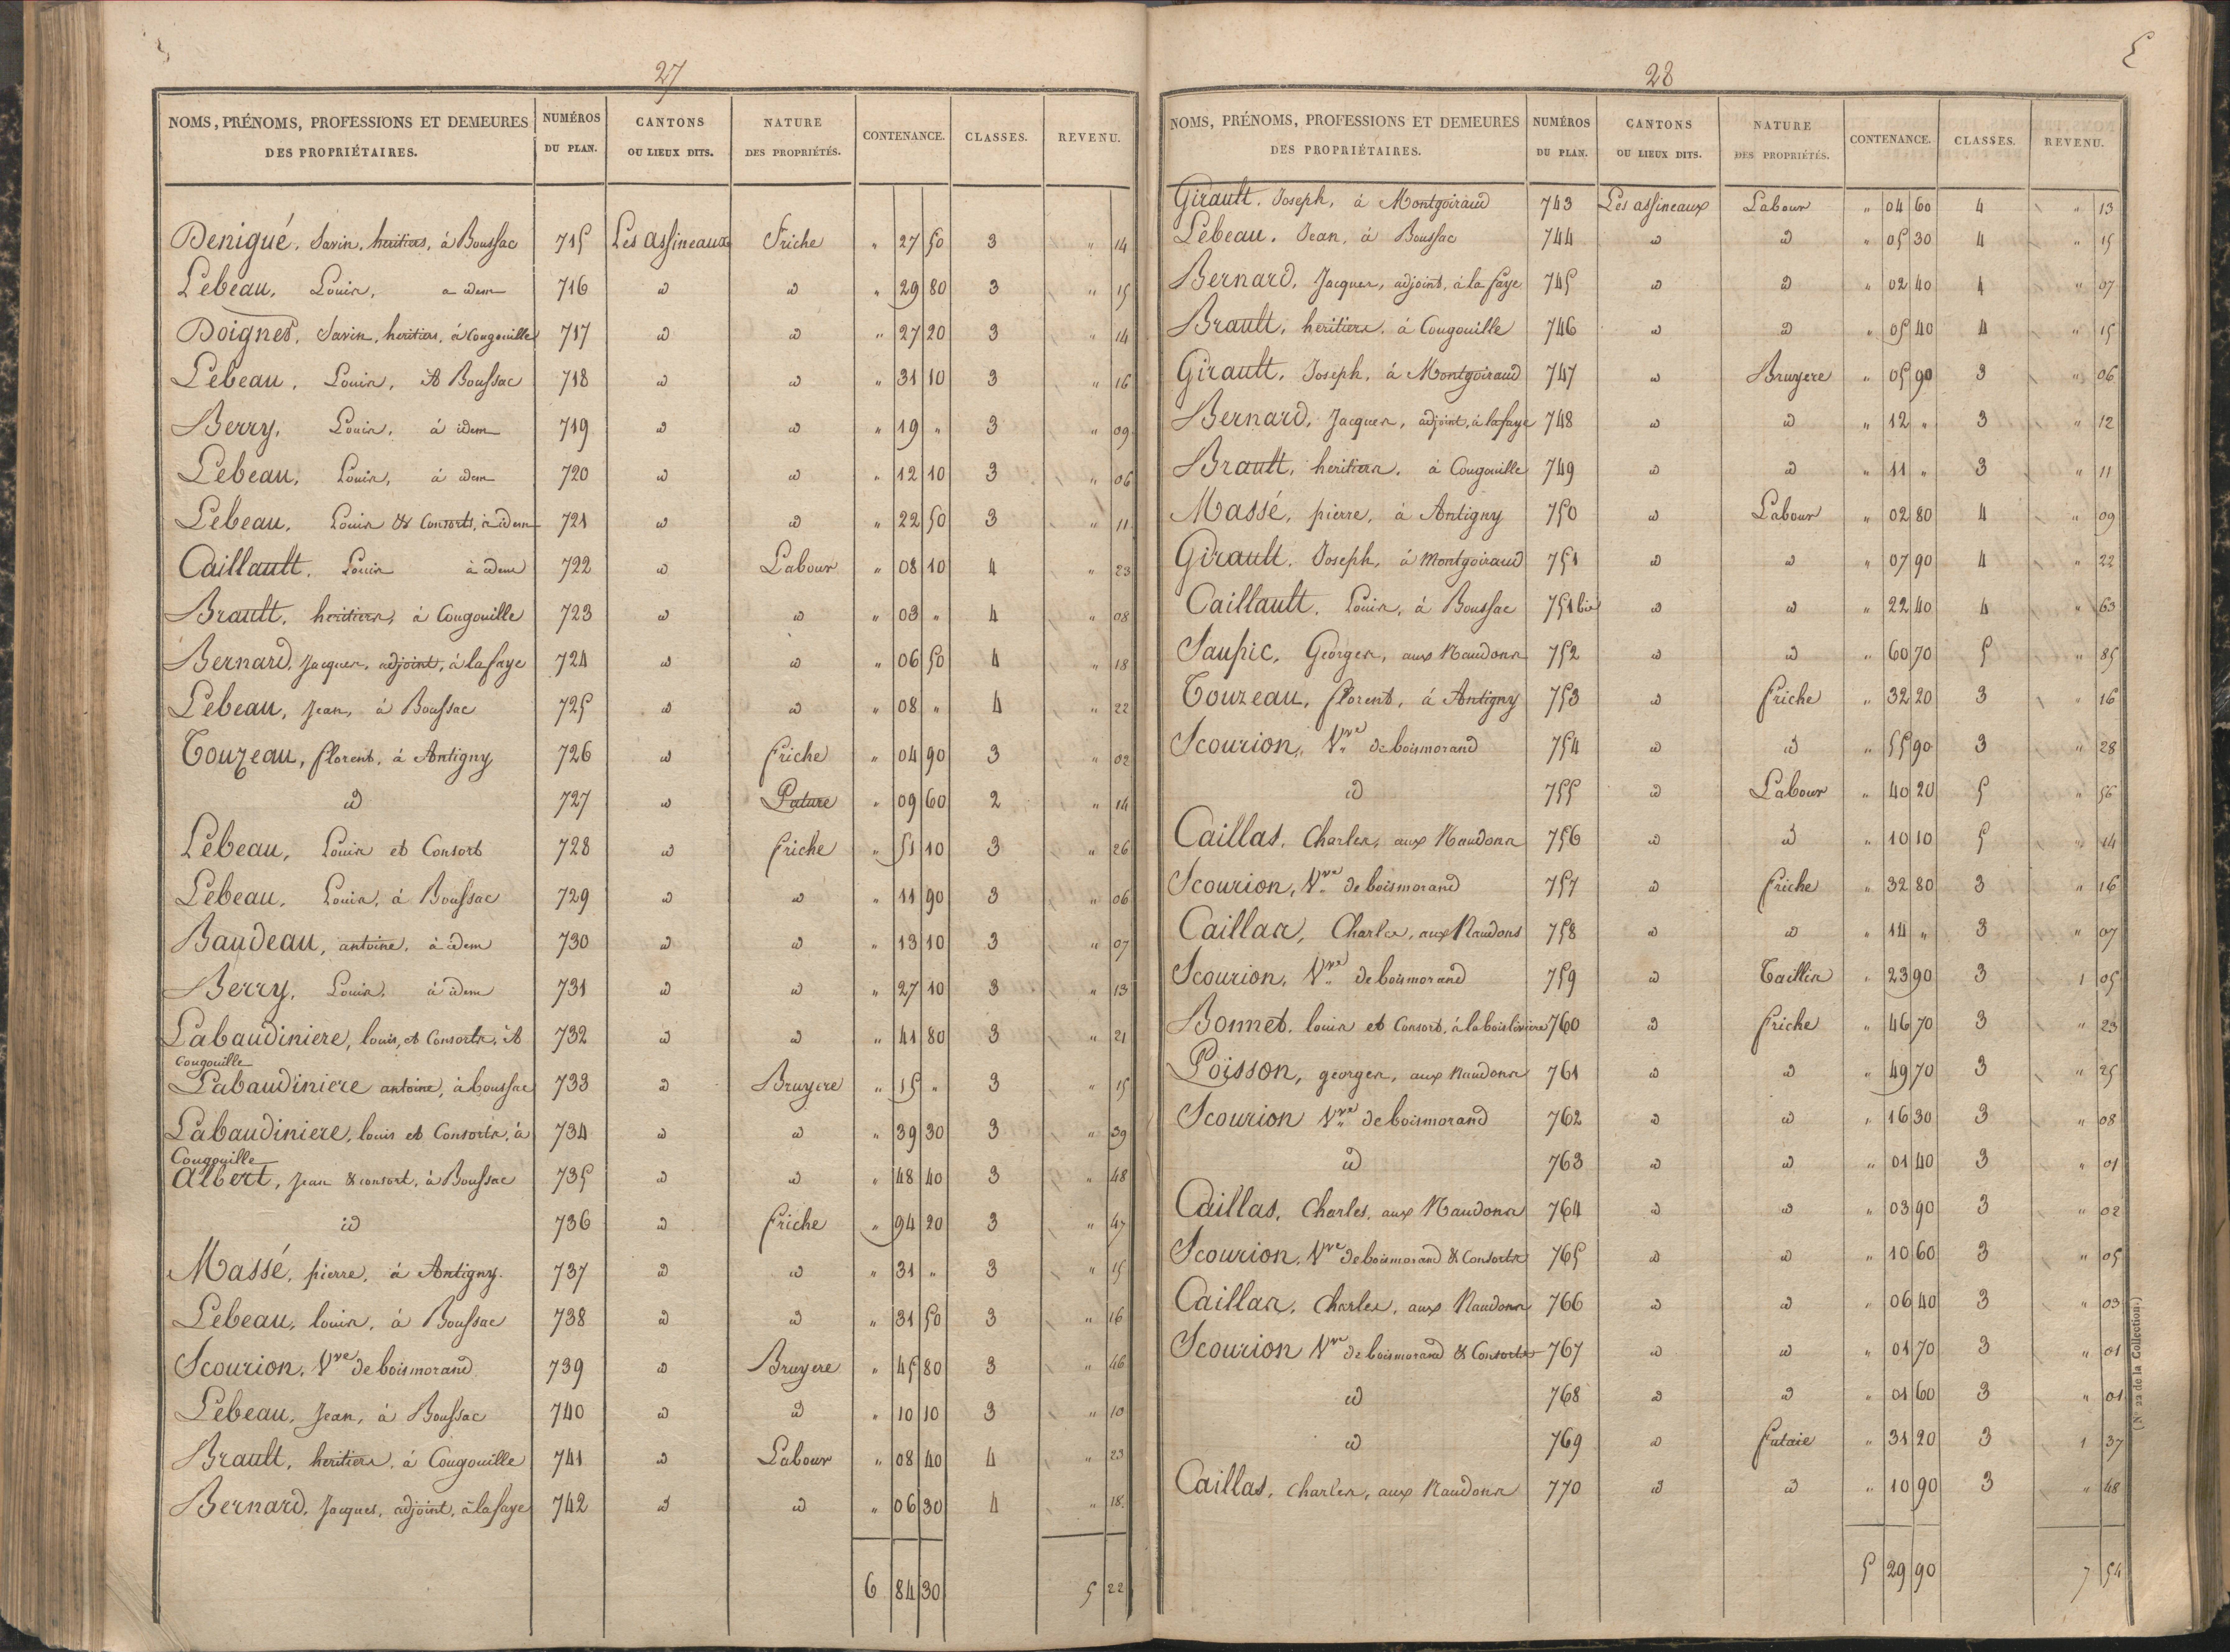 27
NOMS, PRÉNOMS, PROFESSIONS ET DEMEURES DES PROPRIÉTAIRES. NUMÉROS DU PLAN. CANTONS OU LIEUX DITS. NATURE DES PROPRIÉTÉS. CONTENANCE. CLASSES. REVENU.
Denigué, Savin, heritiers, à Boussac 715 Les assineaux Friche " 27 50 3 " 14
Lebeau, Louis, a idem 716 id id " 29 80 3 " 15
Doignes, Savin, heritiers, à Cougouille 717 id id " 27 20 3 " 14
Lebeau, Louis, A Boussac 718 id id " 31 10 3 " 16
Berry, Louis, à idem 719 id id " 19 " 3 " 09
Lebeau, Louis, à idem 720 id id " 12 10 3 " 06
Lebeau, Louis & Consorts, à idem 721 id id " 22 50 3 " 11
Caillault, Louis à idem 722 id Labour " 08 10 4 " 23
Brault, heritiers, à Cougouille 723 id id " 03 " 4 " 08
Bernard, Jacques, adjoint, à la faye 724 id id " 06 50 4 " 18
Lebeau, Jean, à Boussac 725 id id " 08 " 4 " 22
Touzeau, florent, à Antigny 726 id friche " 04 90 3 " 02
id 727 id Pature " 09 60 2 " 14
Lebeau, Louis et Consort 728 id friche " 51 10 3 " 26
Lebeau, Louis, à Boussac 729 id id " 11 90 3 " 06
Baudeau, antoine, à idem 730 id id " 13 10 3 " 07
Berry, Louis, à idem 731 id id " 27 10 3 " 13
Labaudiniere, louis, et Consorts, A 732 id id " 41 80 3 " 21
Cougouille
Labaudiniere antoine, à boussac 733 id Bruyere " 15 " 3 " 15
Labaudiniere, louis et Consorts, à 734 id id " 39 30 3 " 39
Cougouille
Albert, Jean & consort, à Boussac 735 id id " 48 40 3 " 48
id 736 id friche " 94 20 3 " 47
Massé, pierre, à Antigny. 737 id id " 31 " 3 " 15
Lebeau, louis, à Boussac 738 id id " 31 50 3 " 16
Scourion, Vve de boismorand 739 id Bruyere " 45 80 3 " 46
Lebeau, Jean, à Boussac 740 id id " 10 10 3 " 10
Brault, heritiers, à Cougouille 741 id Labour " 08 40 4 " 23
Bernard, Jacques, adjoint, à la faye 742 id id " 06 30 4 " 18
6 84 30 5 22
28
NOMS, PRÉNOMS, PROFESSIONS ET DEMEURES DES PROPRIÉTAIRES. NUMÉROS DU PLAN. CANTONS OU LIEUX DITS. NATURE DES PROPRIÉTÉS. CONTENANCE. CLASSES. REVENU.
Girault, Joseph, à Montgoiraud 743 Les assineaux Labour " 04 60 4 " 13
Lebeau, Jean, à Boussac 744 id id " 05 30 4 " 15
Bernard, Jacques, adjoint, à la faye 745 id id " 02 40 4 " 07
Brault, heritiers, à Cougouille 746 id id " 05 40 4 " 15
Girault, Joseph, à Montgoiraud 747 id Bruyere " 05 90 3 " 06
Bernard, Jacques, adjoint, à la faye 748 id id " 12 " 3 " 12
Brault, heritiers, à Cougouille 749 id id " 11 " 3 " 11
Massé, pierre, à Antigny 750 id Labour " 02 80 4 " 09
Girault, Joseph, à Montgoiraud 751 id id " 07 90 4 " 22
Caillault, Louis, à Boussac 751 bis id id " 22 40 4 " 63
Saupic, Georges, aux Naudons 752 id id " 60 70 5 " 85
Touzeau, florent, à Antigny 753 id friche " 32 20 3 " 16
Scourion, Vve de boismorand 754 id id " 55 90 3 " 28
id 755 id Labour " 40 20 5 " 56
Caillas, Charles, aux Naudons 756 id id " 10 10 5 " 14
Scourion, Vve de boismorand 757 id friche " 32 80 3 " 16
Caillas, Charles, aux Naudons 758 id id " 14 " 3 " 07
Scourion, Vve de boismorand 759 id Taillis " 23 90 3 1 05
Bonnet, louis et Consort, à la boisliviere 760 id friche " 46 70 3 " 23
Poisson, georges, aux Naudons 761 id id " 49 70 3 " 25
Scourion Vve de boismorand 762 id id " 16 30 3 " 08
id 763 id id " 01 40 3 " 01
Caillas, Charles, aux Naudons 764 id id " 03 90 3 " 02
Scourion, Vve de boismorand & Consorts 765 id id " 10 60 3 " 05
Caillas, Charles, aux Naudons 766 id id " 06 40 3 " 03
Scourion Vve de boismorand & Consorts 767 id id " 01 70 3 " 01
id 768 id id " 01 60 3 " 01
id 769 id futaie " 31 20 3 1 37
Caillas, Charles, aux Naudons 770 id id " 10 90 3 " 48
5 29 90 7 54
(N° 22 de la Collection.)